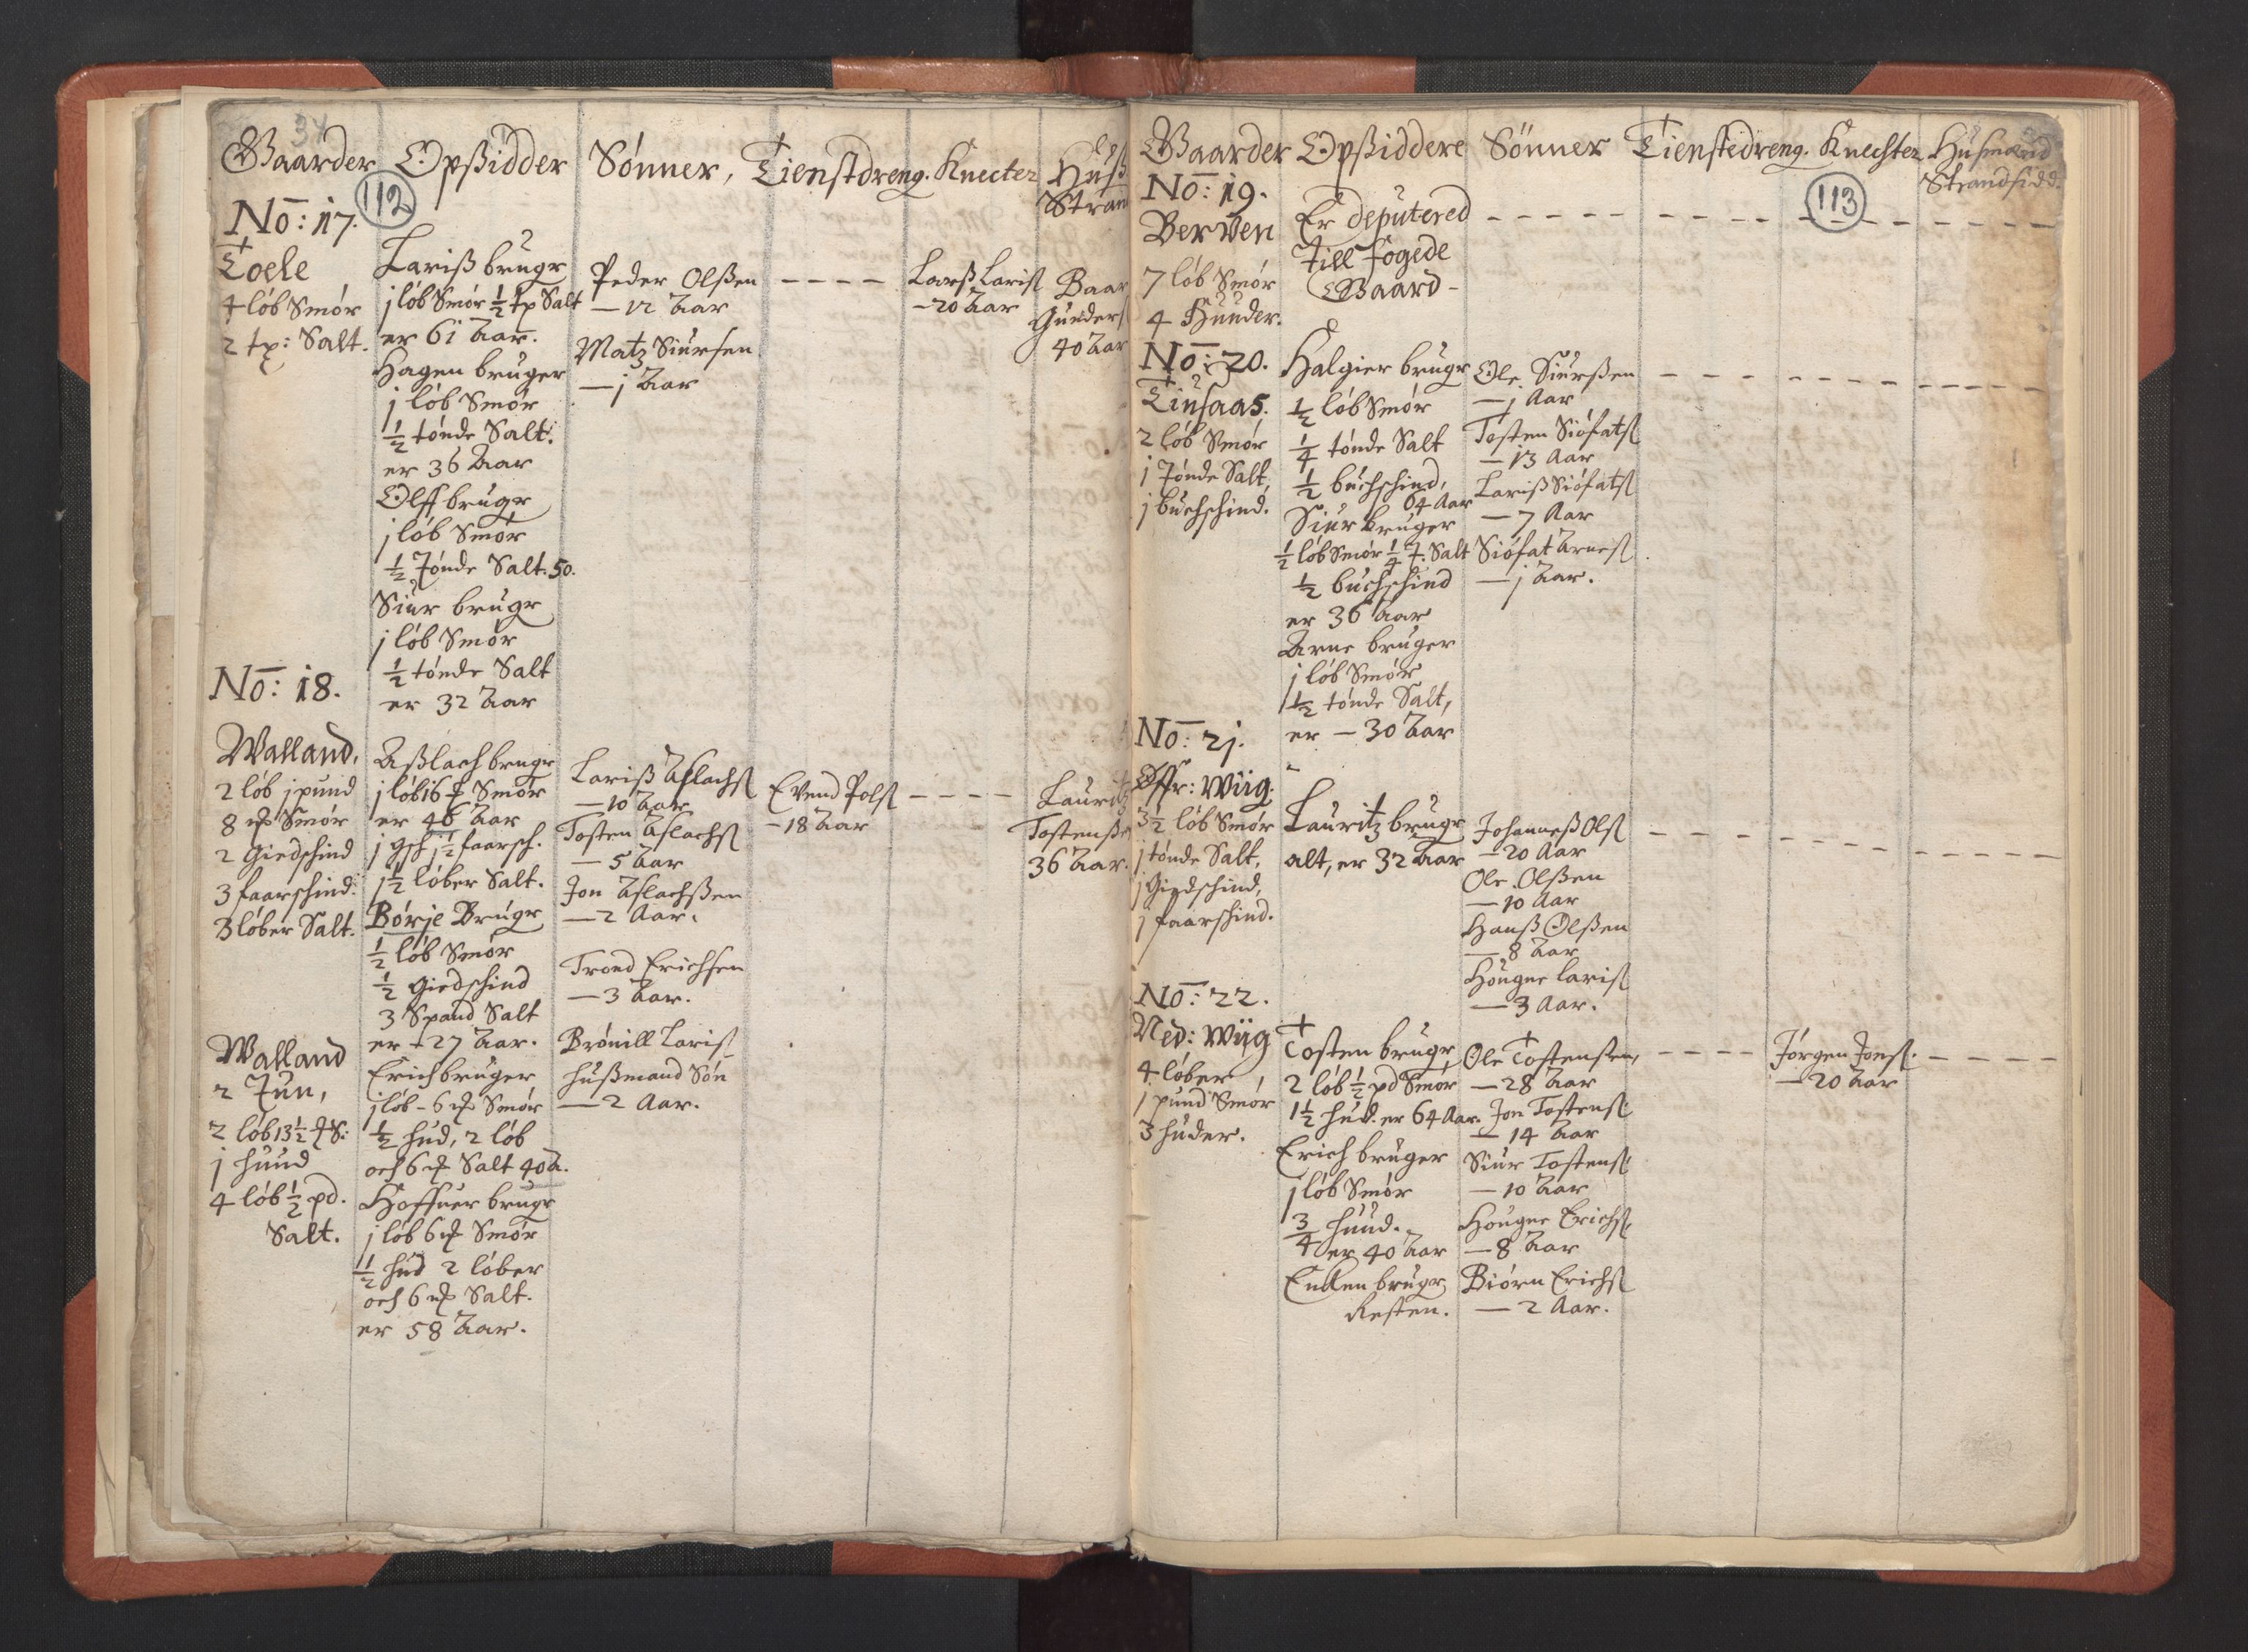 34
Gaarder Opsidder Sønner, Tienstdreng. Knecter Huß
Stran
112
No: 17.
Toele
4 løb Smør
2 tp: Salt.
Lariß brugr
j løb Smør ½ tp Salt
er 61 Aar.
Hagen bruger
j løb Smør
½ tønde Salt.
er 36 Aar
Olff brugr
j løb Smør
½ Tønde Salt. 50.
Siur brugr
j løb Smør
½ tønde Salt
er 32 Aar
Peder Olßen
— 12 Aar
Matz Siursen
— j Aar
Larß Lariß
- 20 Aar
Baar
Gunders
40 Aar
No: 18.
Walland.
2 løb j pund
8 Smør
2 Giedschind
3 faarschind.
3 løber Salt.
Aßlach brugr
j løb 16 Smør
er 46 Aar
j gsch 1½ faarsch.
1½ løber Salt.
Børje Brugr
½ løb Smør
½ Giedschind
3 Spand Salt
er - 27 Aar.
Lariß Aslachß
— 10 Aar
Tosten Aslachß
— 5 Aar
Jon Aslachßen
— 2 Aar.
Trond Erichsen
— 3 Aar.
Brønill Lariß
Hußmand Søn
— 2 Aar.
Evend Polß
- 18 Aar
Lauritz
Tostenße
36 Aar.
Walland
2 Tun,
2 løb 13½ S:
j Huud
4 løb ½ pd.
Salt.
Erich bruger
j løb - 6 Smør
½ hud, 2 løb
och 6 Salt 40 A.
Hoffuer brugr
j løb 6 Smør
½ hud 2 løber
och 6 Salt.
er 58 Aar.
Gaarder Opßiddere Sönner Tienstedreng. Knechter Husmænd
Strandsidd.
113
No: 19.
Berven
7 løb Smør
4 Huuder.
Er deputered
till fogede
Gaard -
No: 20.
Tinsaas.
2 løb Smør
j Tønde Salt,
j buchschind.
Halgier brugr
½ løb Smør
¼ tønde Salt
½ buchschind,
64 Aar
Siur bruger
½ løb Smør ¼ t. Salt
½ buchschind
er 36 Aar
Arne bruger
j løb Smør
½ tønde Salt,
er — 30 Aar
Ole Siurßen
— j Aar
Tosten Siøfatß
— 13 Aar
Lariß Siøfatß
— 7 Aar
Siøfat Arneß
— j Aar.
No: 2j.
Offr: Wiig.
3½ løb Smør
j tønde Salt,
j Giedschind,
j faarschind.
Lauritz brugr
alt, er 32 Aar
Johanneß Olß
— 20 Aar
Ole Olßen
— 10 Aar
Hanß Olßen
— 8 Aar
Hougne Lariß
— 3 Aar.
No: 22.
Ned: Wiig
4 løber
1 pund Smør
3 huder.
Tosten brugr
2 løb ½ pd Smør
1½ hud. er 64 Aar.
Erich bruger
j løb Smør
¾ huud.
er 40 Aar
Enken brugr
Resten.
Ole Tostensen,
— 28 Aar
Jon Tostenß
— 14 Aar
Siur Tostenß
— 10 Aar
Hougne Erichß
— 8 Aar
Biørn Erichß
— 2 Aar.
Jørgen Jonß.
— 20 Aar